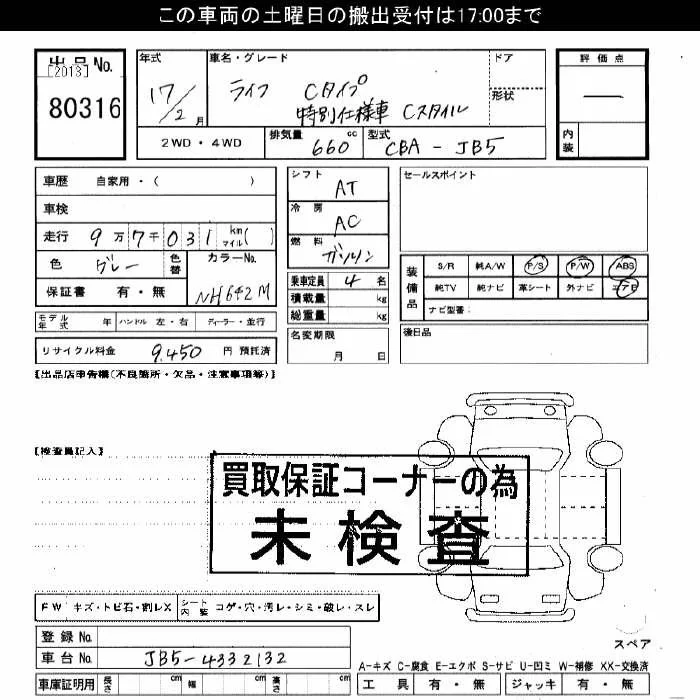 この車両の土曜日の搬出受付は17:00まで
出品No.
[2013]
80316
年式
17/2 月
車名・グレード
ライフ Cタイプ
特別仕様車 Cスタイル
ドア
形状
評価点
内装
2WD・4WD
排気量 660 cc
型式 CBA-JB5
車歴 自家用・( )
車検
走行 9万7千031 km マイル( )
色 グレー 色替
カラーNo. NH642M
保証書 有・無
シフト AT
冷房 AC
燃料 ガソリン
乗車定員 4 名
積載量 kg
総重量 kg
セールスポイント
装備品
S/R 純A/W P/S P/W ABS
純TV 純ナビ 革シート 外ナビ エアB
ナビ型番:
モデル年式 年 ハンドル 左・右 ディーラー・並行
名変期限
月 日
後日品
リサイクル料金 9,450 円 預託済
【出品店申告欄(不良箇所・欠品・注意事項等)】
【検査員記入】
買取保証コーナーの為
未検査
FW キズ・トビ石・割レX シート内装 コゲ・穴・汚レ・シミ・破レ・スレ
登録No.
車台No. JB5-4332132
車庫証明用 長さ cm 幅 cm 高さ cm
スペア
A-キズ C-腐食 E-エクボ S-サビ U-凹ミ W-補修 XX-交換済
工具 有・無 ジャッキ 有・無